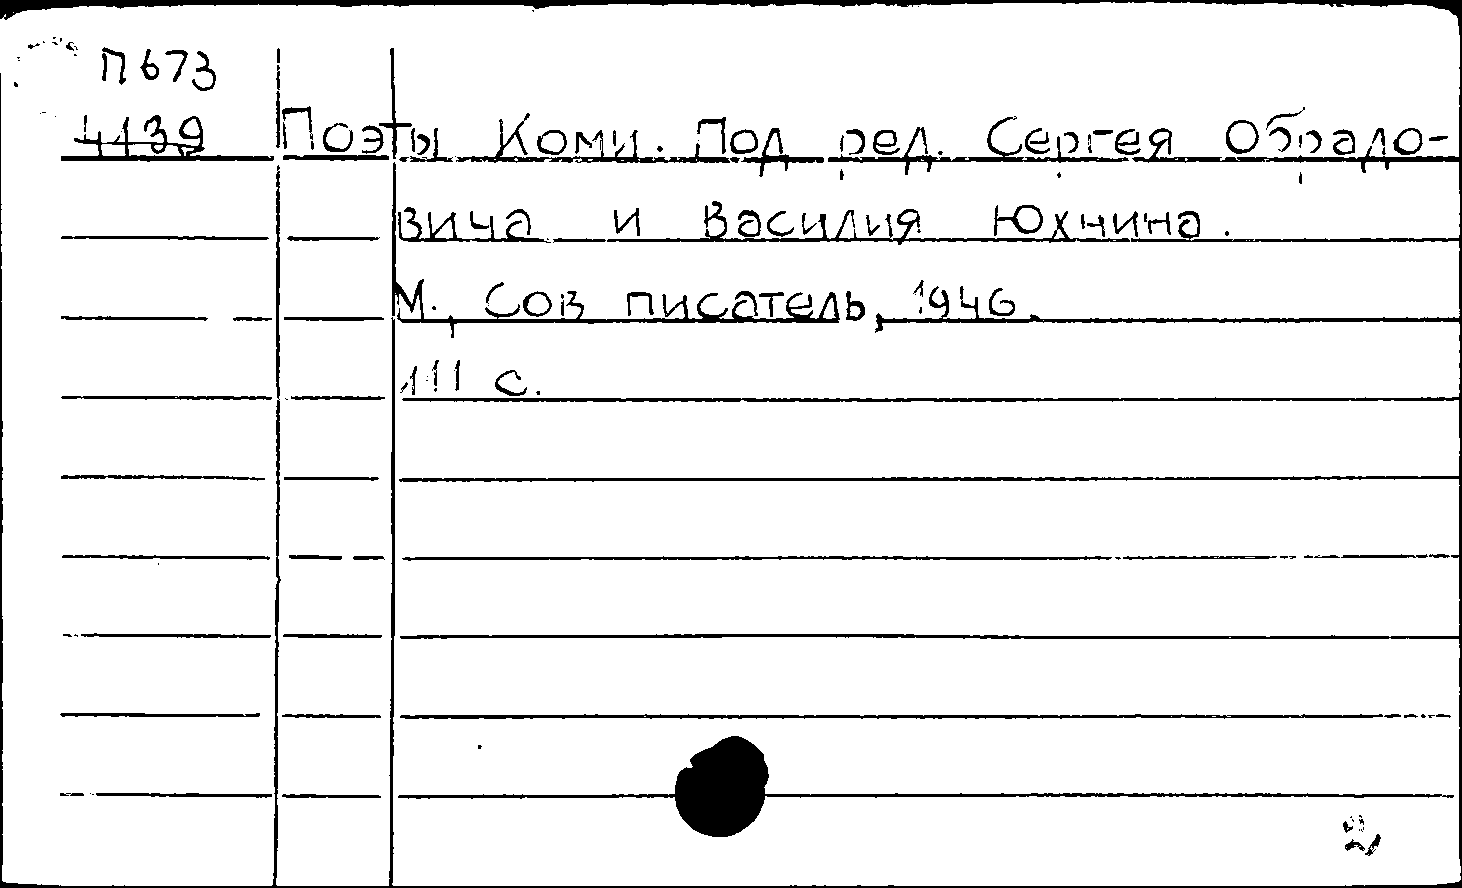 П673
4139
Поэты Коми. Под ред. Сергея Обрадо-
вича и Василия Юхнина.
М., Сов писатель, 1946.
111 с.
2